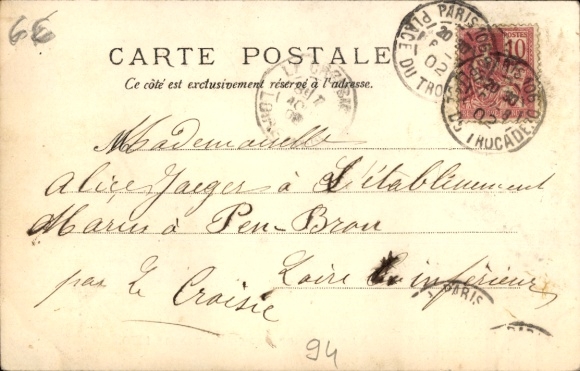 66
CARTE POSTALE
Ce côté est exclusivement réservé à l'adresse.
POSTES
10
PARIS
PLACE DU TROCADERO
02
PLACE DU TROCADERO
02
LE CROISIC
Mademoiselle
Alice Jaeger à L'établissement
Marin à Pen-Bron
par Le Croisic
Loire inférieure
PARIS
PARIS
94